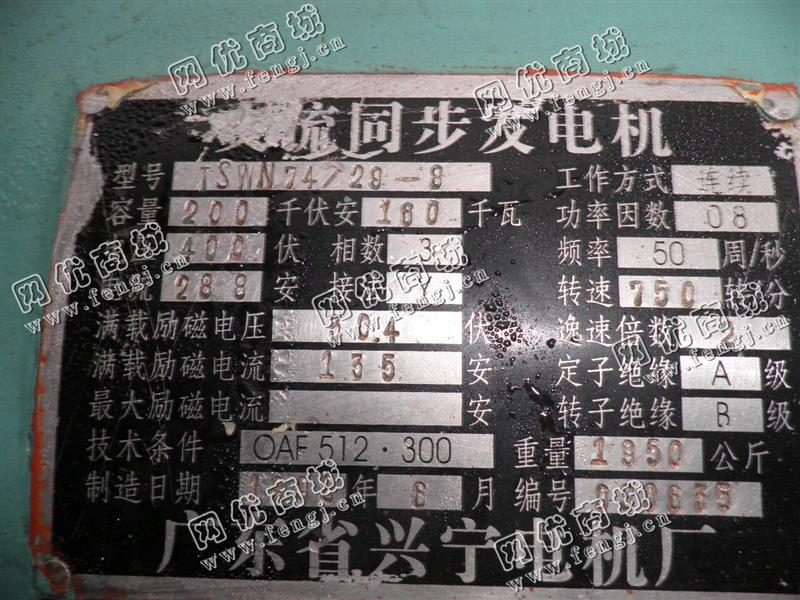 流同步发电机
型号 TSWN74/29-8 工作方式 连续
容量 200 千伏安 160 千瓦 功率因数 08
400 伏 相数 3 频率 50 周/秒
流 288 安 接 Y 转速 750 转/分
满载励磁电压 伏 逸速倍数 2
满载励磁电流 135 安 定子绝缘 A 级
最大励磁电流 安 转子绝缘 B 级
技术条件 OAF 512·300 重量 1950 公斤
制造日期 年 6 月 编号
广东省兴宁电机厂
网优商城
www.fengj.cn